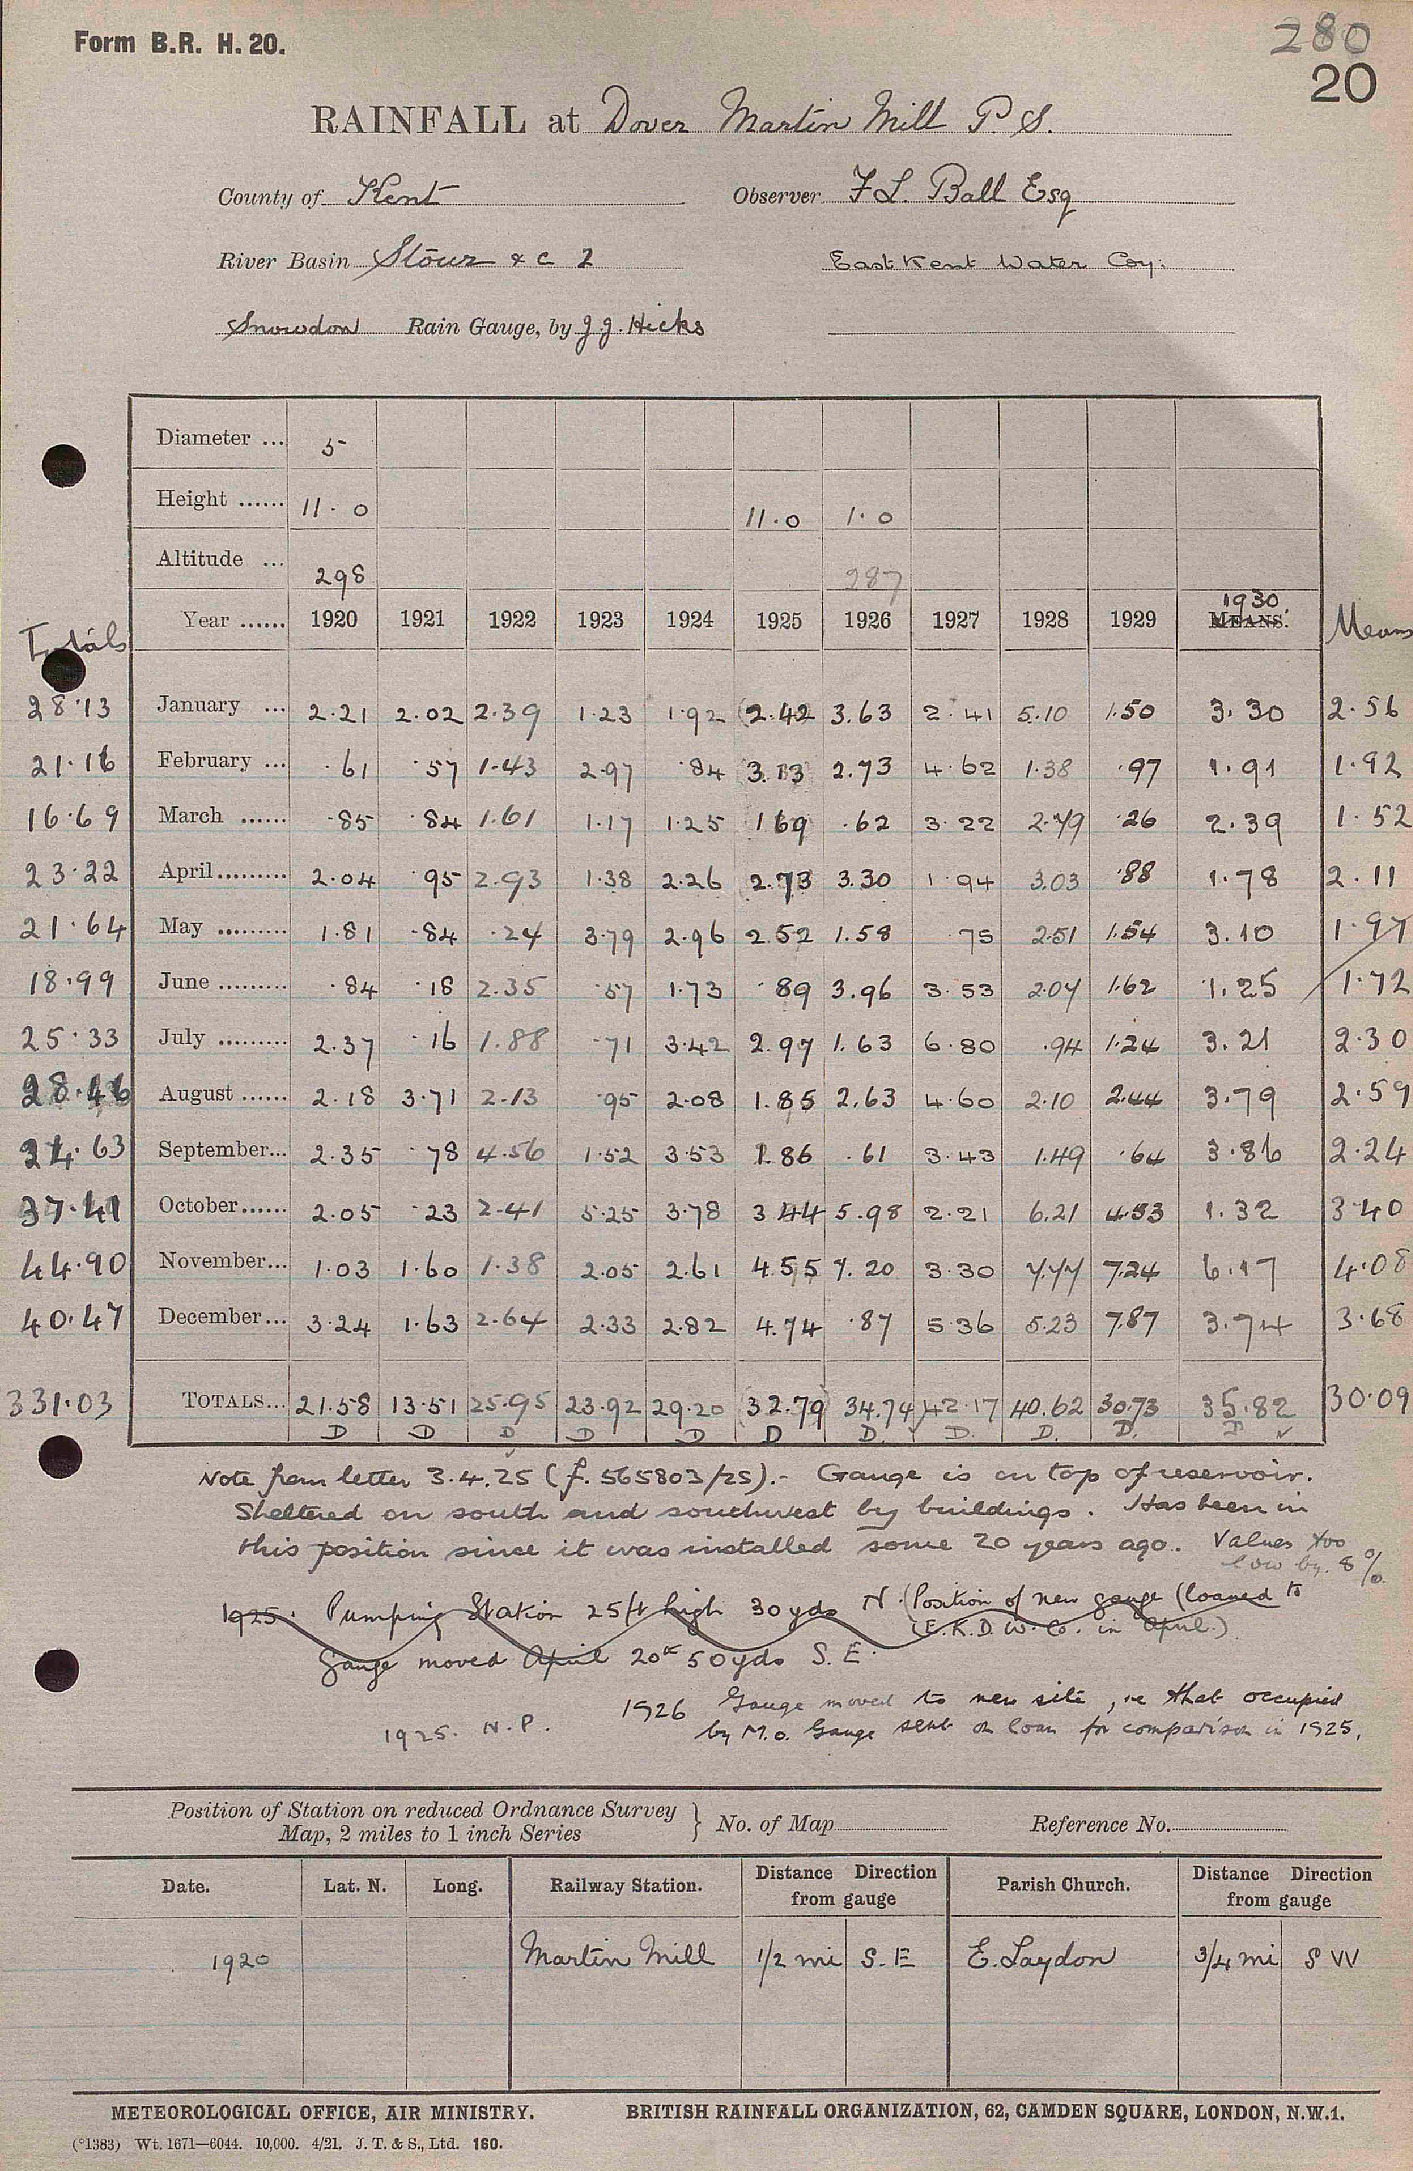 Form B.R. H. 20.
280
20
RAINFALL at Dover Martin Mill P. S.
County of Kent Observer F L. Ball Esq
River Basin Stour & c 2 East Kent Water Coy:
Snowdon Rain Gauge, by J J. Hicks
Diameter ... 5
Height ...... 11. 0 11.0 1.0
Altitude ... 298 287
Totals Year ...... 1920 1921 1922 1923 1924 1925 1926 1927 1928 1929 1930 MEANS. Means
28.13 January ... 2.21 2.02 2.39 1.23 1.92 (2.42 3.63 2.41 5.10 1.50 3.30 2.56
21.16 February ... .61 .57 1.43 2.97 .84 3.13 2.73 4.62 1.38 .97 1.91 1.92
16.69 March ...... .85 .84 1.61 1.17 1.25 1 69 .62 3.22 2.79 .26 2.39 1.52
23.22 April......... 2.04 .95 2.93 1.38 2.26 2.73 3.30 1.94 3.03 .88 1.78 2.11
21.64 May ......... 1.81 .84 .24 3.79 2.96 2.52 1.58 75 2.51 1.54 3.10 1.97
18.99 June ......... .84 .18 2.35 .57 1.73 .89 3.96 3.53 2.07 1.62 1.25 1.72
25.33 July ......... 2.37 .16 1.88 .71 3.42 2.97 1.63 6.80 .94 1.24 3.21 2.30
28.46 August ...... 2.18 3.71 2.13 .95 2.08 1.85 2.63 4.60 2.10 2.44 3.79 2.59
24.63 September... 2.35 .78 4.56 1.52 3.53 1.86 .61 3.43 1.49 .64 3.86 2.24
37.41 October...... 2.05 .23 2.41 5.25 3.78 3 44 5.98 2.21 6.21 4.53 1.32 3.40
44.90 November... 1.03 1.60 1.38 2.05 2.61 4.55 7.20 3.30 7.77 7.24 6.17 4.08
40.47 December... 3.24 1.63 2.64 2.33 2.82 4.74 .87 5.36 5.23 7.87 3.74 3.68
331.03 TOTALS... 21.58 13.51 25.95 23.92 29.20 (32.79) 34.74 42.17 40.62 30.73 35.82 30.09
D D D D D D D. D. D. D. D
Note from letter 3.4.25 (f. 565803/25).- Gauge is on top of reservoir.
Sheltered on south and southwest by buildings. Has been in
this position since it was installed some 20 years ago. Values too
low by 8 %
1925. Pumping Station 25ft high 30yds N. (Position of new gauge (loaned to
(E.K.D.W.Co. in April.)
Gauge moved April 20th 50yds S.E.
1926 Gauge moved to new site, ie that occupied
1925. N.P. by M.O. Gauge sent on loan for comparison in 1925.
Position of Station on reduced Ordnance Survey
Map, 2 miles to 1 inch Series } No. of Map Reference No.
Date. Lat. N. Long. Railway Station. Distance Direction from gauge Parish Church. Distance Direction from gauge
1920 Martin Mill 1/2 mi S.E E. Laydon 3/4 mi S W
METEOROLOGICAL OFFICE, AIR MINISTRY. BRITISH RAINFALL ORGANIZATION, 62, CAMDEN SQUARE, LONDON, N.W.1.
(°1383) Wt. 1671—6044. 10,000. 4/21. J. T. & S., Ltd. 160.